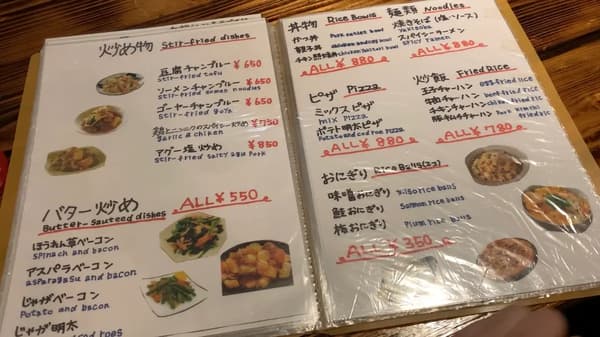 炒め物 Stir-fried dishes
豆腐チャンプルー ¥650
Stir-fried tofu
ソーメンチャンプルー ¥650
Stir-fried somen noodles
ゴーヤーチャンプルー ¥650
Stir-fried goya
¥750
garlic & chiken
アグー塩炒め ¥850
Stir-fried salty agu Pork
バター炒め ALL¥550
Butter-Sauteed dishes
ほうれん草ベーコン
Spinach and bacon
アスパラベーコン
asparagasu and bacon
じゃがベーコン
Potato and bacon
じゃが明太
丼物 Rice Bowls
カツ丼 Pork cutlet bowl
親子丼
ALL¥880
麺類 Noodles
焼きそば(塩・ソース)
Yakisoba
スパイシーラーメン
Spicy ramen
ALL¥880
ピザ Pizza
ミックスピザ
mix Pizza
ポテト明太ピザ
Potato and cod roe Pizza
ALL¥880
炒飯 Fried Rice
玉子チャーハン egg fried rice
牛肉チャーハン beef fried rice
チキンチャーハン
豚キムチチャーハン
ALL¥780
おにぎり Rice Balls(2コ)
味噌おにぎり Miso rice balls
鮭おにぎり Salmon rice balls
梅おにぎり Plum rice balls
ALL¥350